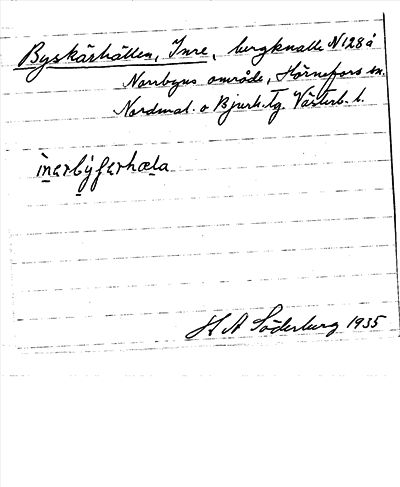 Byskärhällen, Inre, bergknalle N128 å
Norrbyns område, Hörnefors sn.
Nordmal. o Bjurh. tg. Västerb. l.
ìnerbýʃerhæla
H A Söderburg 1935